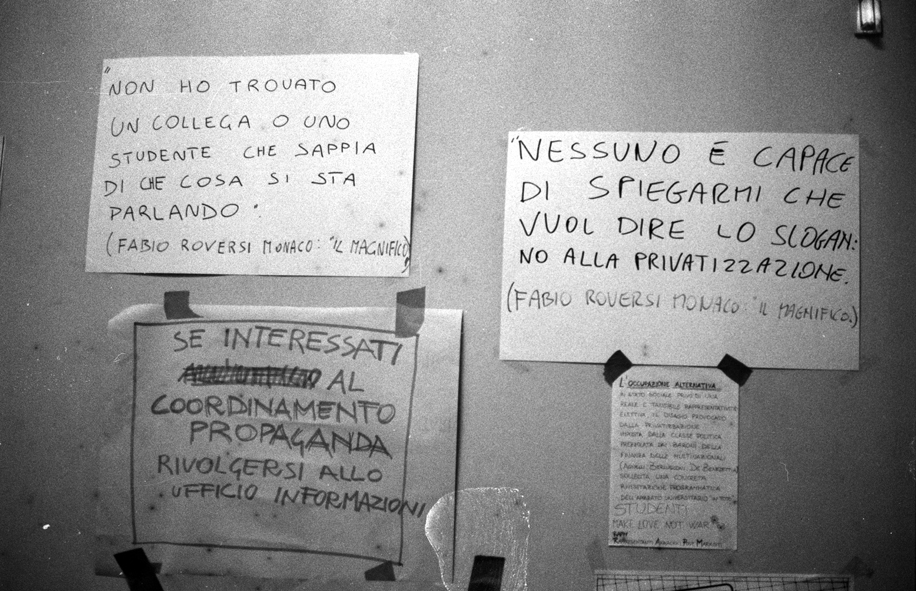 "NON HO TROVATO
UN COLLEGA O UNO
STUDENTE CHE SAPPIA
DI CHE COSA SI STA
PARLANDO".
(FABIO ROVERSI MONACO: "IL MAGNIFICO)
"NESSUNO E CAPACE
DI SPIEGARMI CHE
VUOL DIRE LO SLOGAN:
NO ALLA PRIVATIZZAZIONE.
(FABIO ROVERSI MONACO: "IL MAGNIFICO.)
SE INTERESSATI
AL
COORDINAMENTO
PROPAGANDA
RIVOLGERSI ALLO
UFFICIO INFORMAZIONI
L'OCCUPAZIONE ALTERNATIVA
DALLA PRIVATIZZAZIONE
DALLA CLASSE POLITICA
DAI BARONI DELLA
DELLE MULTINAZIONALI
UNA CONCRETA
PROGRAMMATICA
STUDENTI
MAKE LOVE NOT WAR